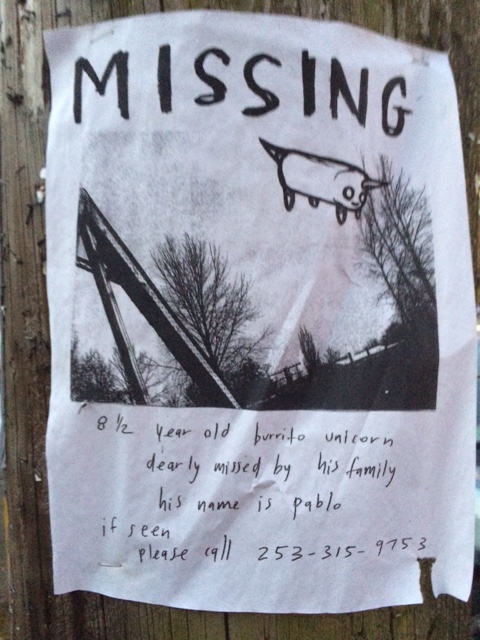 MISSING
8 1/2 year old burrito unicorn
dearly missed by his family
his name is pablo
if seen
please call 253-315-9753